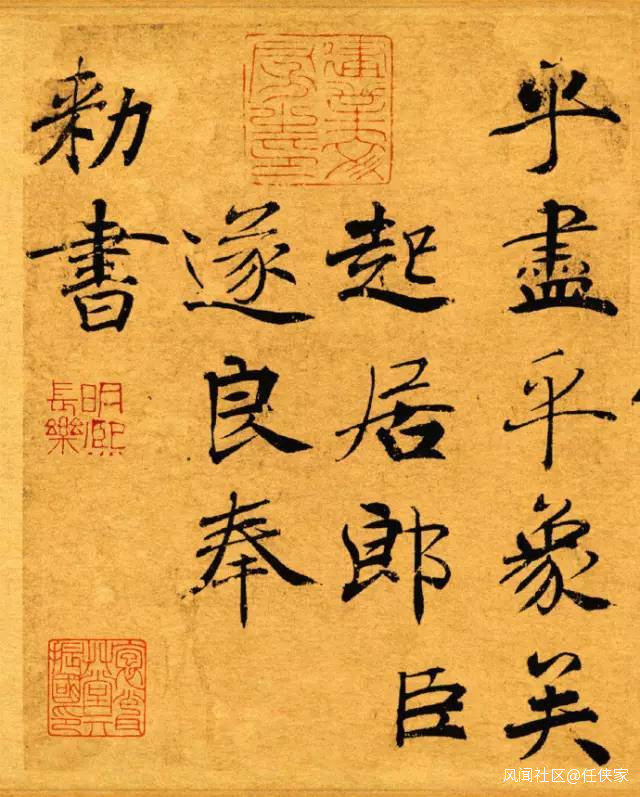 乎盡乎象矣
起居郎臣
遂良奉
勅書
明熙
長樂
风闻社区@任侠家